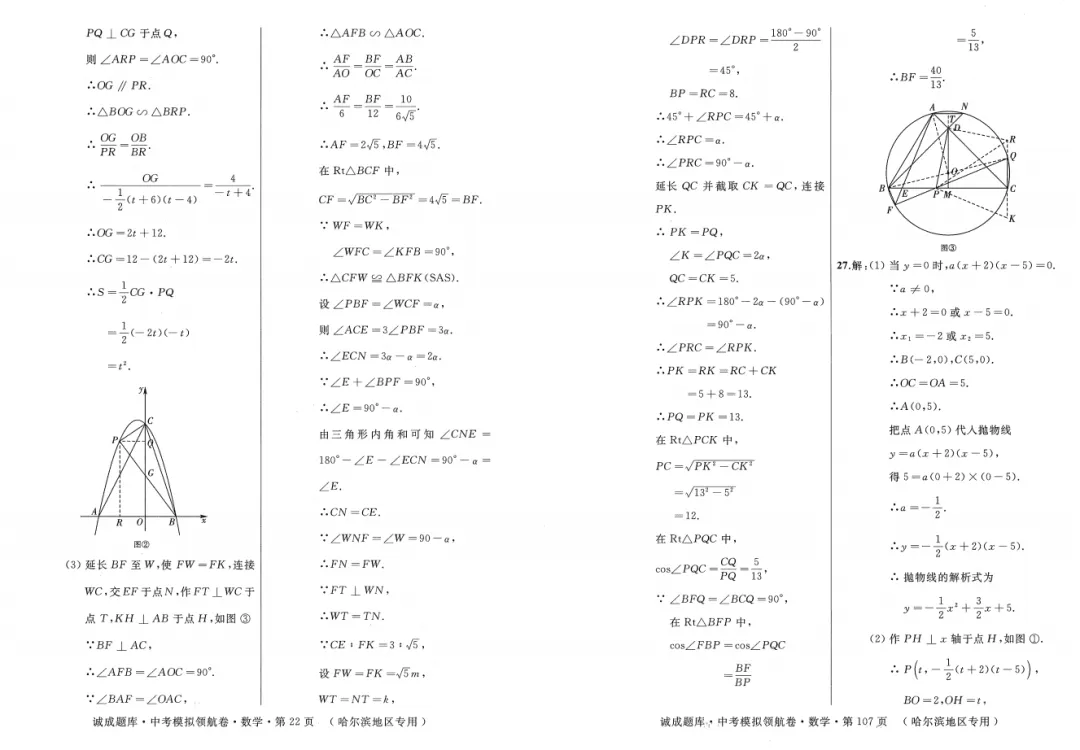 PQ⊥CG于点Q,
则∠ARP=∠AOC=90°.
∴OG∥PR.
∴△BOG∽△BRP.
∴OG/PR=OB/BR.
∴OG/(-1/2(t+6)(t-4))=4/(-t+4).
∴OG=2t+12.
∴CG=12-(2t+12)=-2t.
∴S=1/2CG·PQ
=1/2(-2t)(-t)
=t².
y
C
P
Q
G
A
R
O
B
x
图②
(3)延长BF至W,使FW=FK,连接
WC,交EF于点N,作FT⊥WC于
点T,KH⊥AB于点H,如图③
∵BF⊥AC,
∴∠AFB=∠AOC=90°.
∵∠BAF=∠OAC,
∴△AFB∽△AOC.
∴AF/AO=BF/OC=AB/AC.
∴AF/6=BF/12=10/6√5.
∴AF=2√5,BF=4√5.
在Rt△BCF中,
CF=√(BC²-BF²)=4√5=BF.
∵WF=WK,
∠WFC=∠KFB=90°,
∴△CFW≌△BFK(SAS).
设∠PBF=∠WCF=α,
则∠ACE=3∠PBF=3α.
∴∠ECN=3α-α=2α.
∵∠E+∠BPF=90°,
∴∠E=90°-α.
由三角形内角和可知∠CNE=
180°-∠E-∠ECN=90°-α=
∠E.
∴CN=CE.
∵∠WNF=∠W=90-α,
∴FN=FW.
∵FT⊥WN,
∴WT=TN.
∵CE:FK=3:√5,
设FW=FK=√5m,
WT=NT=k,
诚成题库·中考模拟领航卷·数学·第22页 (哈尔滨地区专用)
∠DPR=∠DRP=(180°-90°)/2
=45°,
BP=RC=8.
∴45°+∠RPC=45°+α.
∴∠RPC=α.
∴∠PRC=90°-α.
延长QC并截取CK=QC,连接
PK.
∴PK=PQ,
∠K=∠PQC=2α,
QC=CK=5.
∴∠RPK=180°-2α-(90°-α)
=90°-α.
∴∠PRC=∠RPK.
∴PK=RK=RC+CK
=5+8=13.
∴PQ=PK=13.
在Rt△PCK中,
PC=√(PK²-CK²)
=√(13²-5²)
=12.
在Rt△PQC中,
cos∠PQC=CQ/PQ=5/13,
∵∠BFQ=∠BCQ=90°,
在Rt△BFP中,
cos∠FBP=cos∠PQC
=BF/BP
=5/13,
∴BF=40/13.
A
N
T
D
R
Q
O
B
E
P
M
C
F
K
图③
27.解:(1)当y=0时,a(x+2)(x-5)=0.
∵a≠0,
∴x+2=0或x-5=0.
∴x₁=-2或x₂=5.
∴B(-2,0),C(5,0).
∴OC=OA=5.
∴A(0,5).
把点A(0,5)代人抛物线
y=a(x+2)(x-5),
得5=a(0+2)×(0-5).
∴a=-1/2.
∴y=-1/2(x+2)(x-5).
∴抛物线的解析式为
y=-1/2x²+3/2x+5.
(2)作PH⊥x轴于点H,如图①.
∴P(t,-1/2(t+2)(t-5)),
BO=2,OH=t,
诚成题库·中考模拟领航卷·数学·第107页 (哈尔滨地区专用)